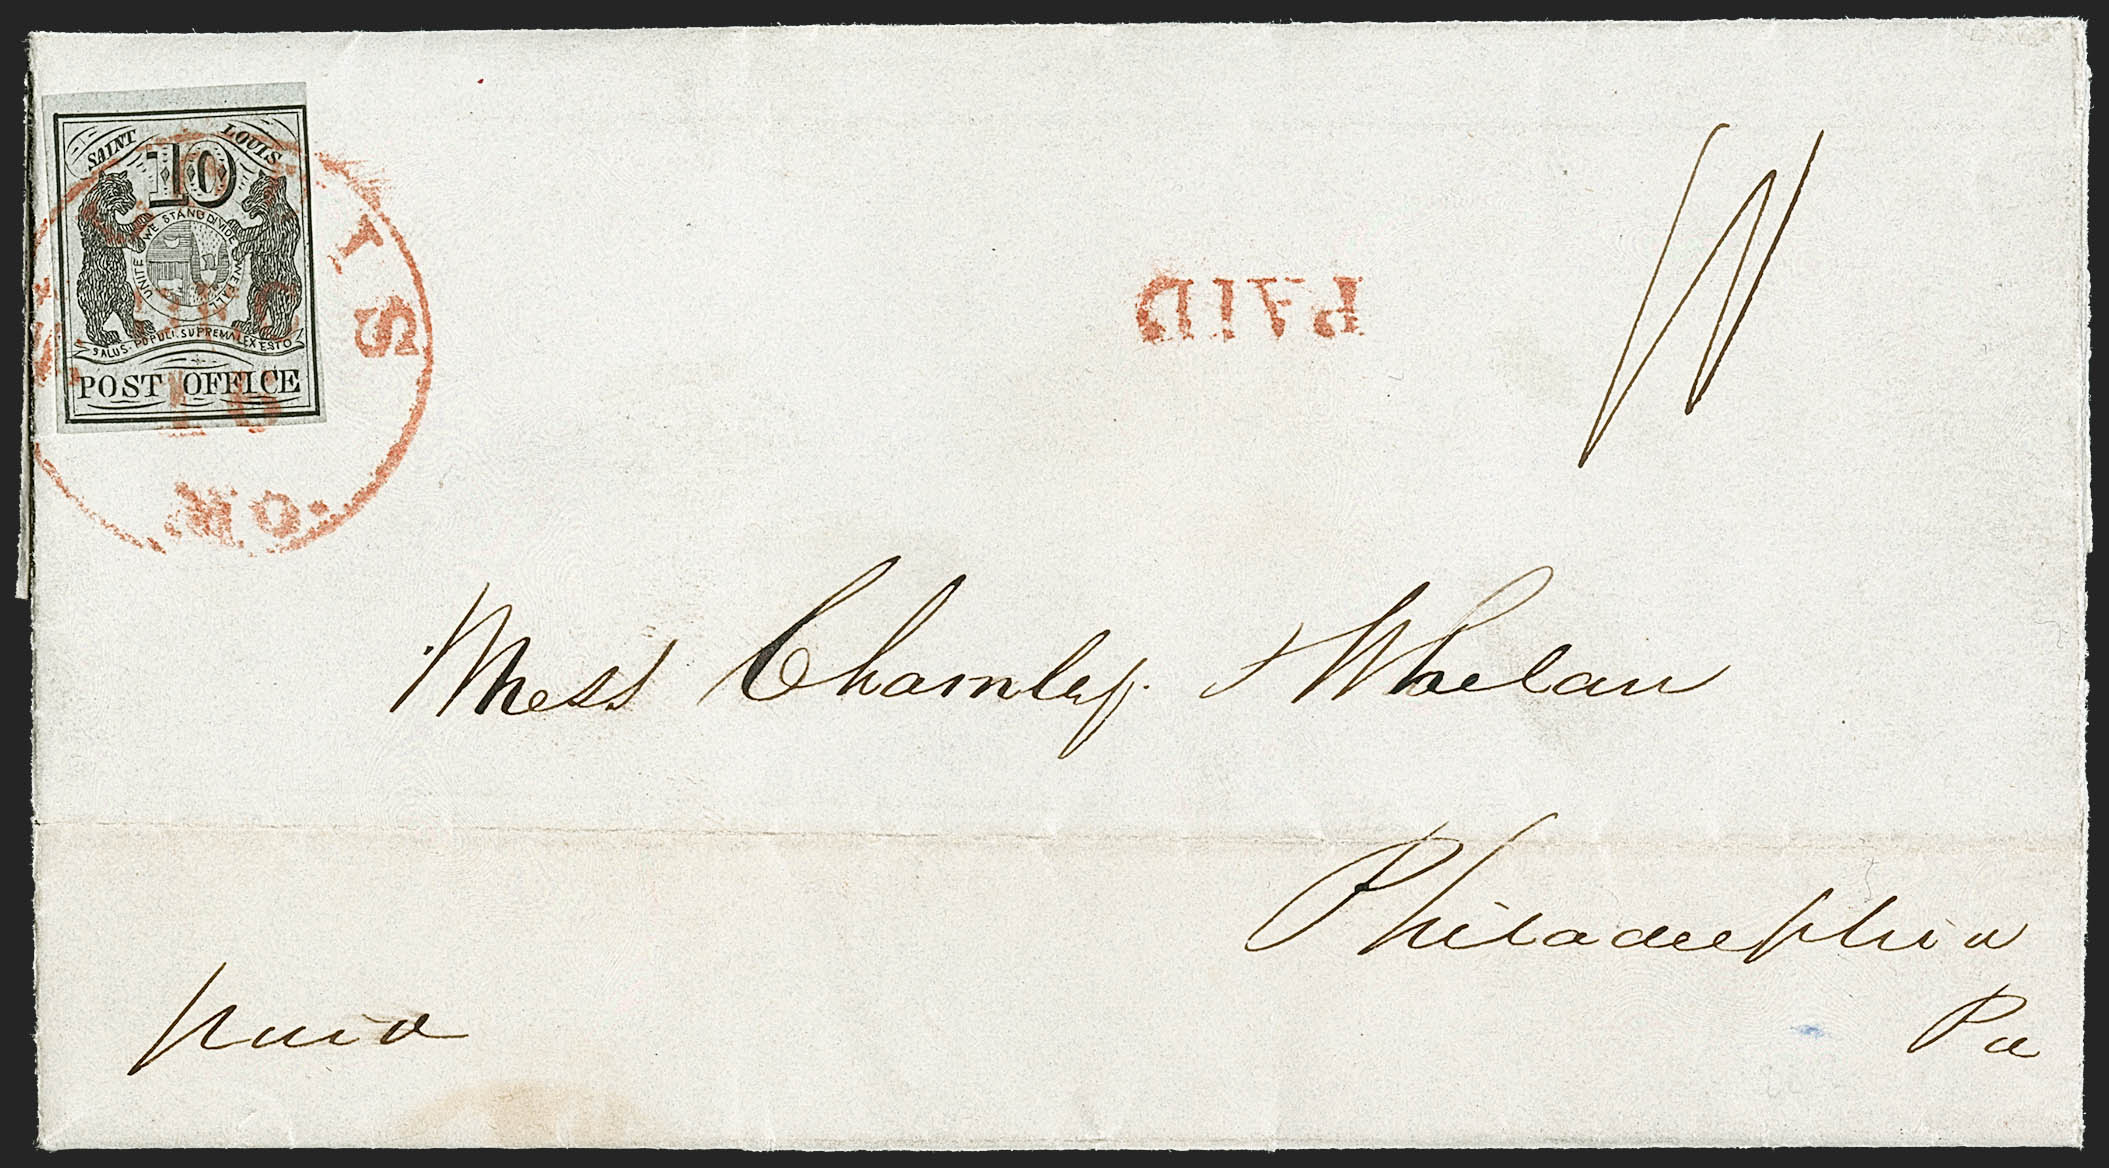 SAINT LOUIS
10
UNITED WE STAND DIVIDED WE FALL
SALUS POPULI SUPREMA LEX ESTO
POST OFFICE
ST LOUIS
10
MO.
PAID
Mess Chamley & Whelan
Philadelphia
Pa
paid